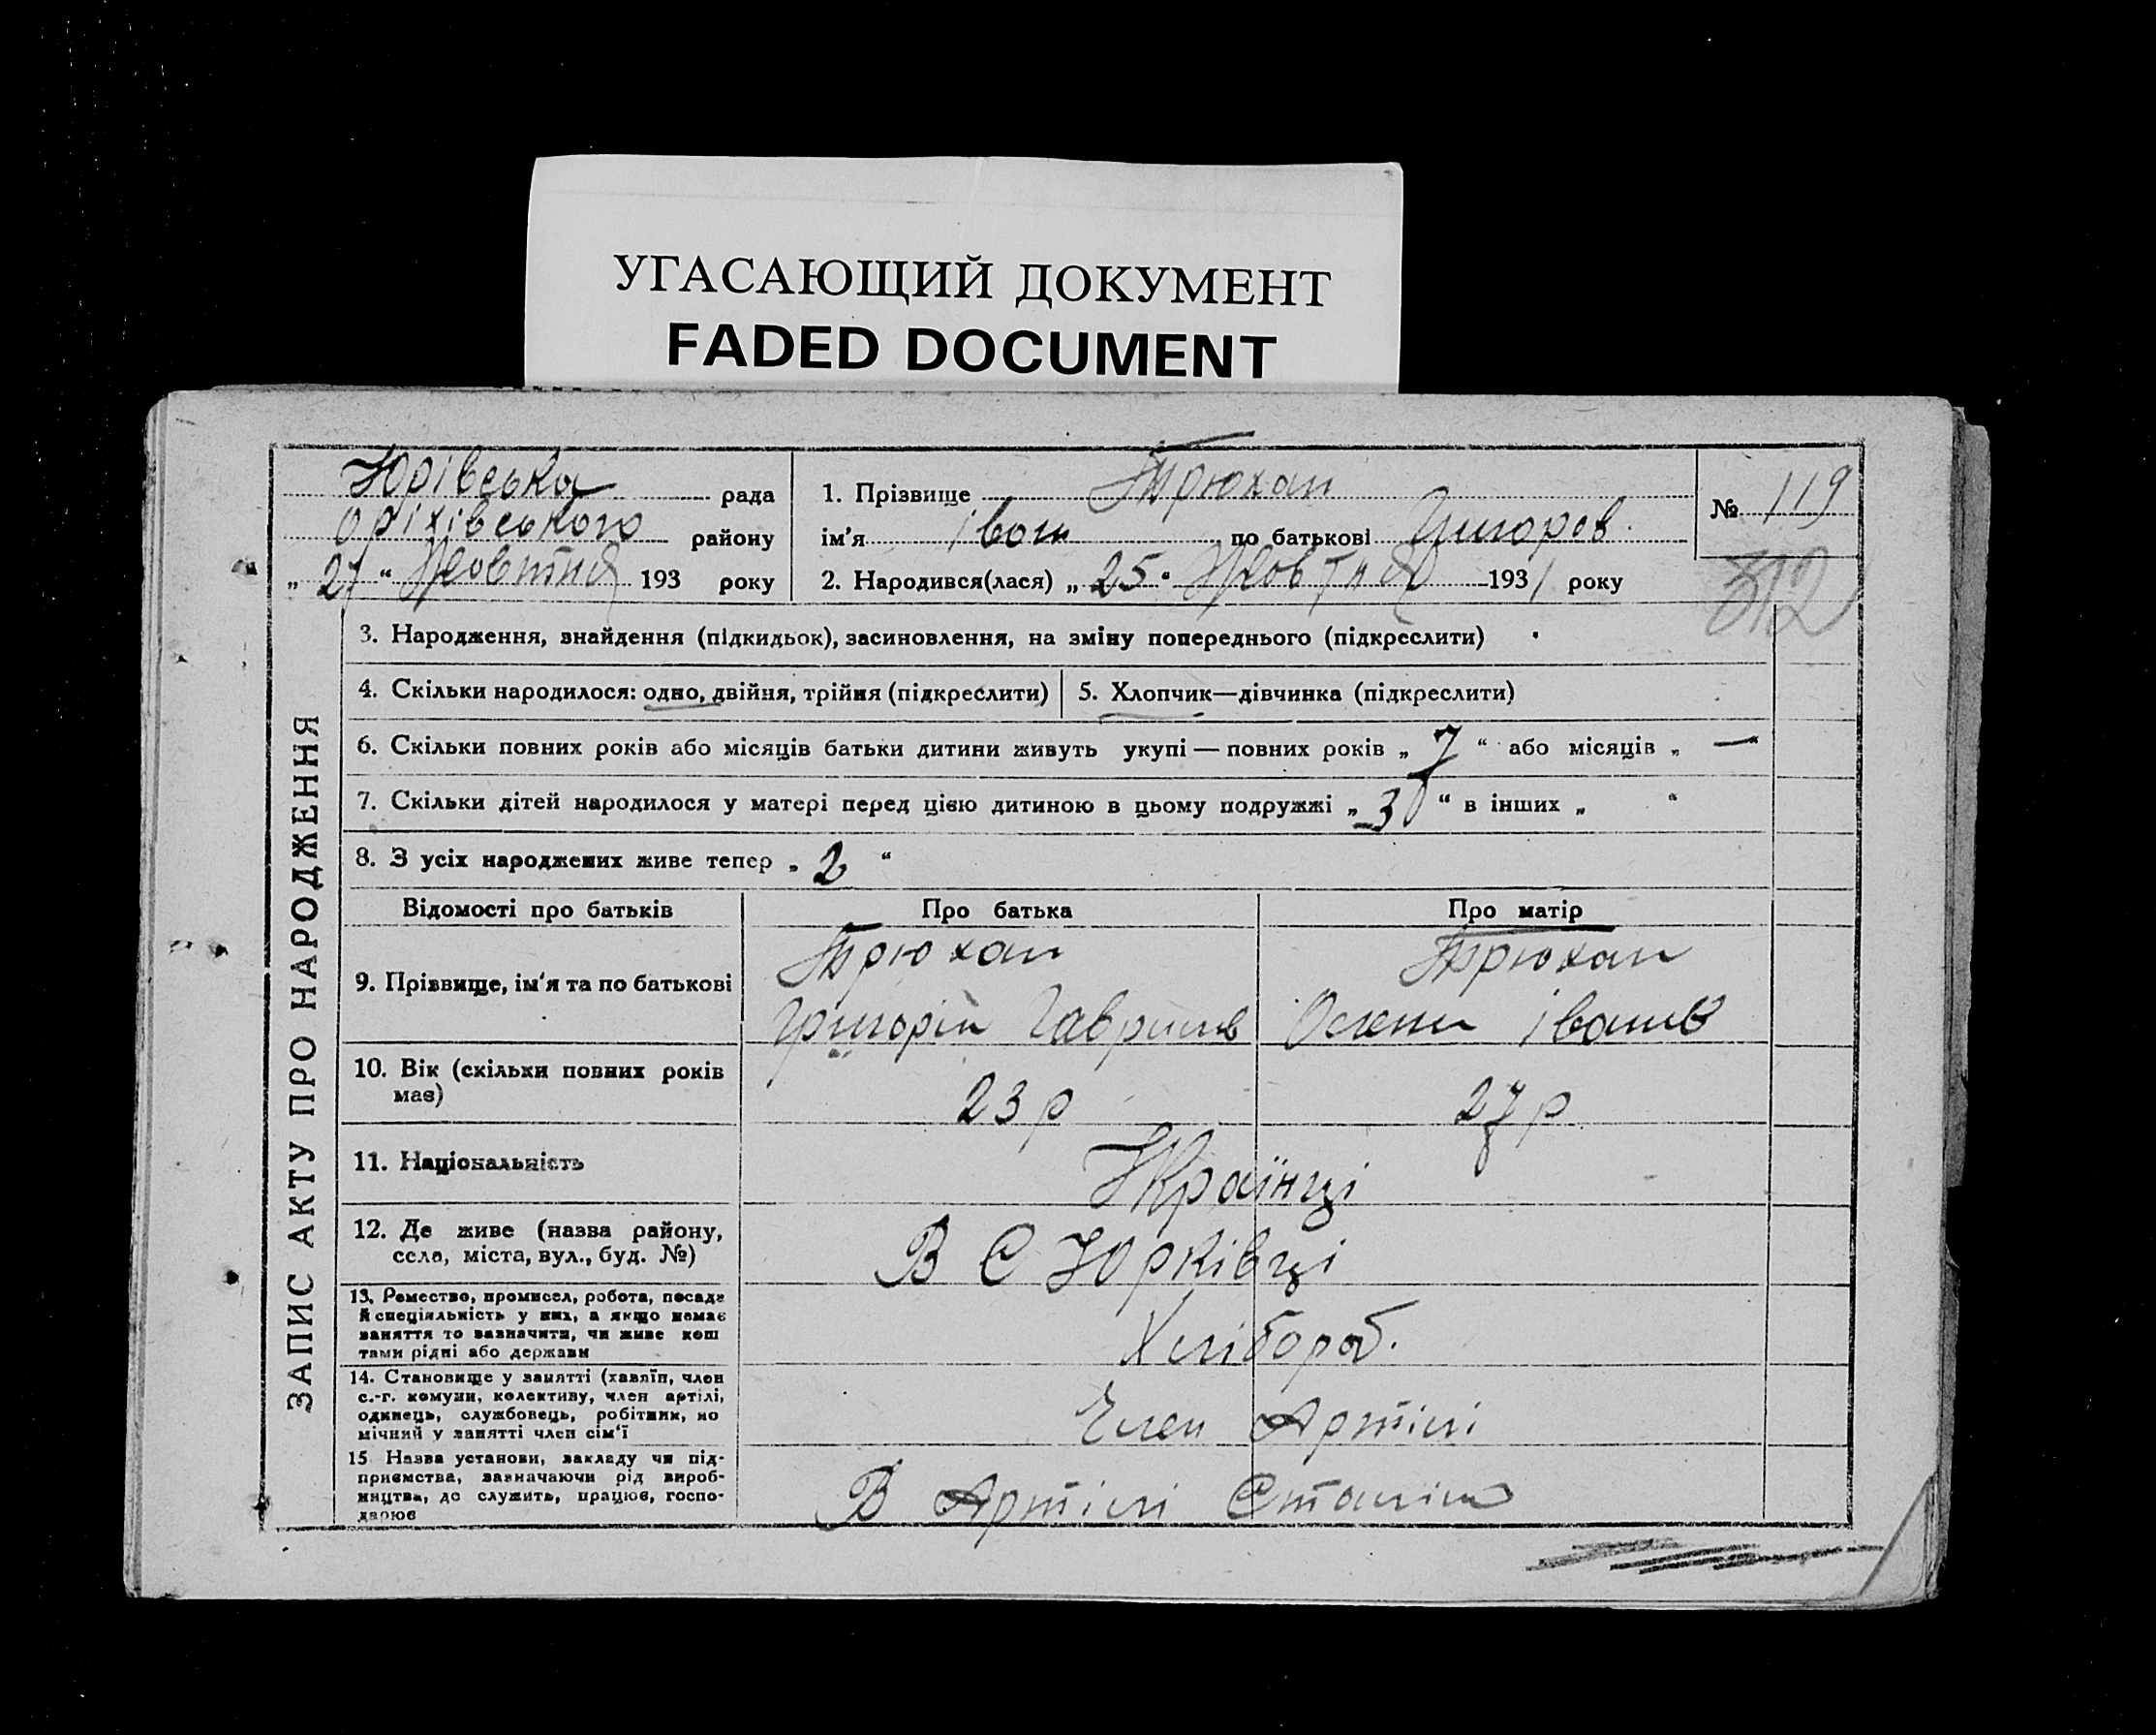 УГАСАЮЩИЙ ДОКУМЕНТ
FADED DOCUMENT
Юрівська рада
Оріхівського району
„ 27 “ Жовтня 193 року
1. Прізвище Трюхан
ім'я Іван по батькові Григоров.
2. Народився(лася) „ 25 “ Жовтня 1931 року
№ 119
312
ЗАПИС АКТУ ПРО НАРОДЖЕННЯ
3. Народження, знайдення (підкидьок), засиновлення, на зміну попереднього (підкреслити)
4. Скільки народилося: одно, двійня, трійня (підкреслити)
5. Хлопчик—дівчинка (підкреслити)
6. Скільки повних років або місяців батьки дитини живуть укупі — повних років „ 7 “ або місяців „ — “
7. Скільки дітей народилося у матері перед цією дитиною в цьому подружжі „ 3 “ в інших „ “
8. З усіх народжених живе тепер „ 2 “
Відомості про батьків Про батька Про матір
9. Прізвище, ім'я та по батькові
Трюхан
Григорій Гаврилів
Трюхан
Іванів
10. Вік (скільки повних років
має)
23 р
27 р
11. Національність
Українці
12. Де живе (назва району,
село, міста, вул., буд. №)
В С Юрківці
13. Ремество, промисел, робота, посада
й спеціяльність у них, а якщо немає
заняття то зазначити, чи живе кош
тами рідні або держави
Хлібороб.
14. Становище у занятті (хазяїн, член
с.-г. комуни, колективу, член артілі,
одинець, службовець, робітник, по
мічний у занятті член сім'ї
Член Артілі
15 Назва установи, закладу чи під-
приємства, зазначаючи рід вироб-
ництва, де служить, працює, госпо-
дарює
В Артілі Сталіна